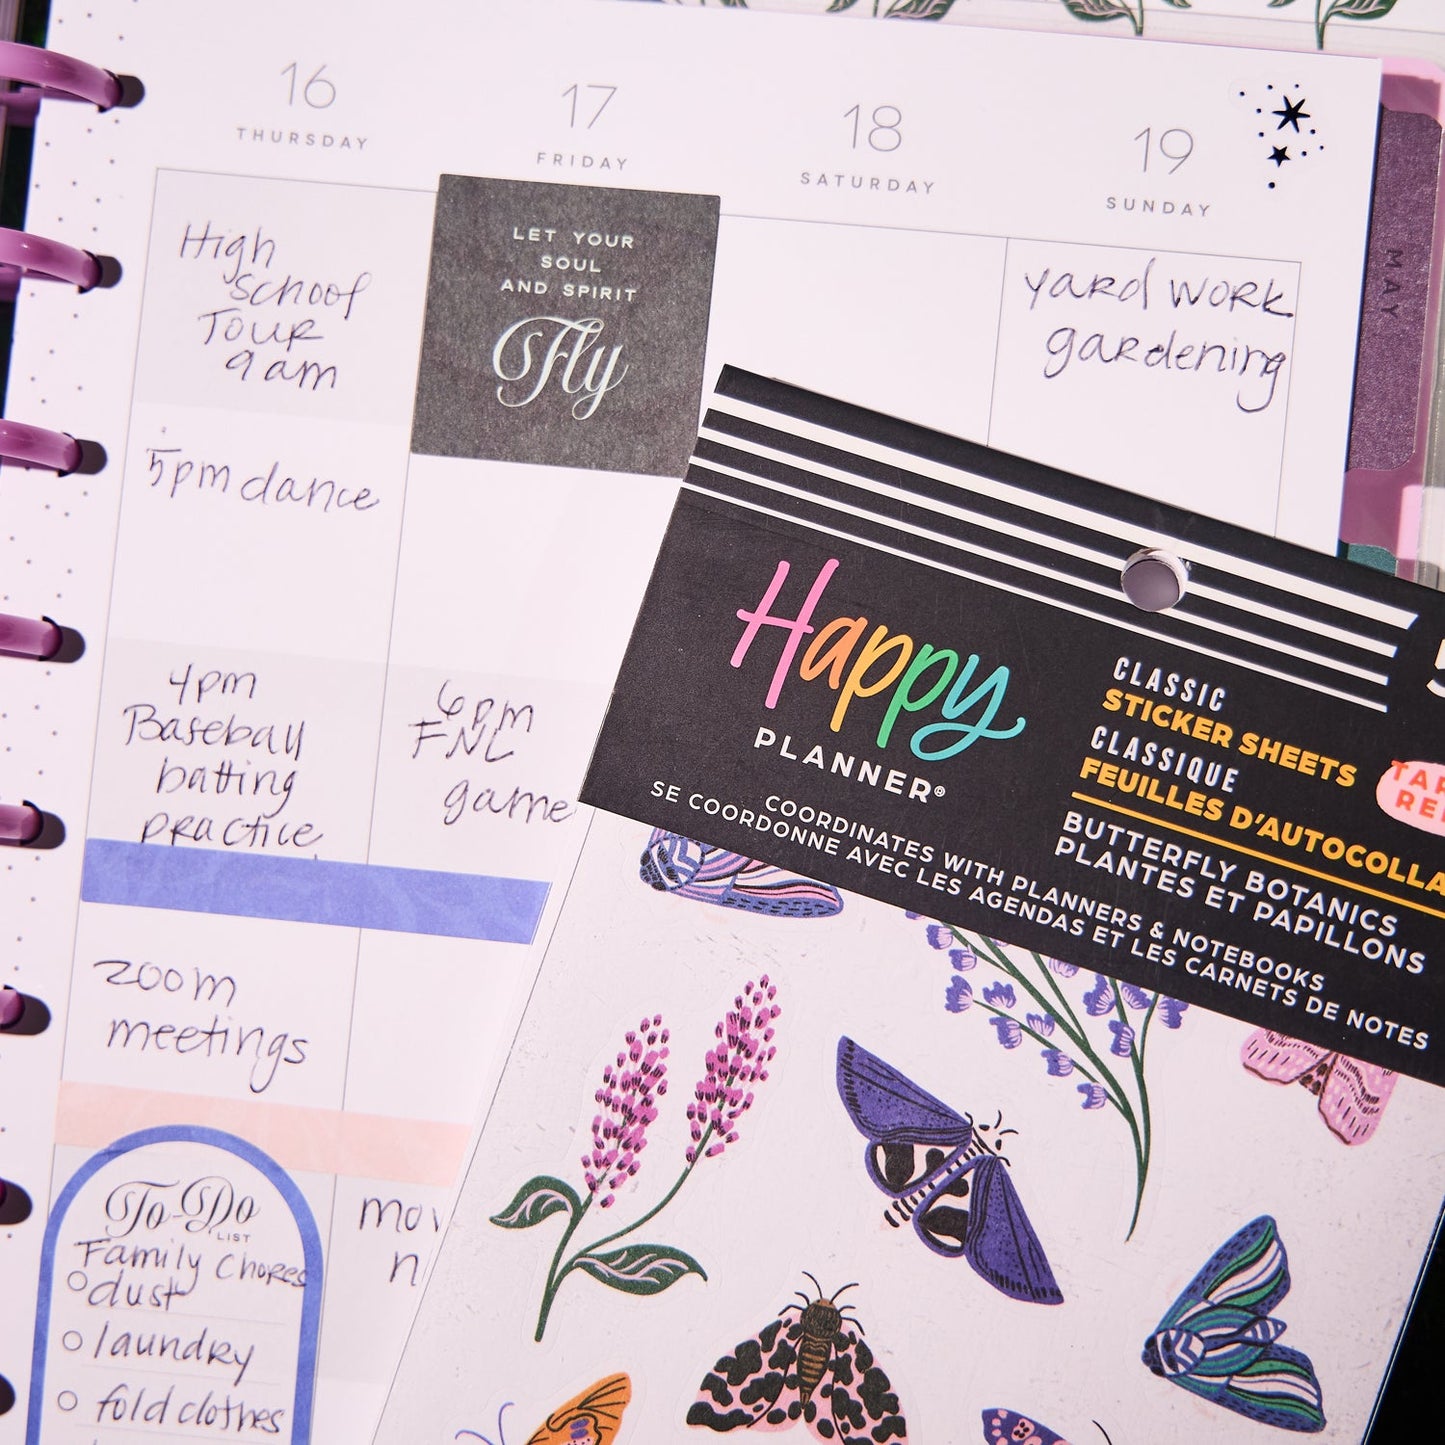 16
THURSDAY
17
FRIDAY
18
SATURDAY
19
SUNDAY
MAY
High
school
Tour
9am
5pm dance
4pm
Baseball
batting
practice
zoom
meetings
To-Do
LIST
Family chores
dust
laundry
fold clothes
LET YOUR
SOUL
AND SPIRIT
Fly
6pm
FNL
game
yard work
gardening
Happy
PLANNER®
COORDINATES WITH PLANNERS & NOTEBOOKS
SE COORDONNE AVEC LES AGENDAS ET LES CARNETS DE NOTES
CLASSIC
STICKER SHEETS
CLASSIQUE
FEUILLES D'AUTOCOLLA
BUTTERFLY BOTANICS
PLANTES ET PAPILLONS